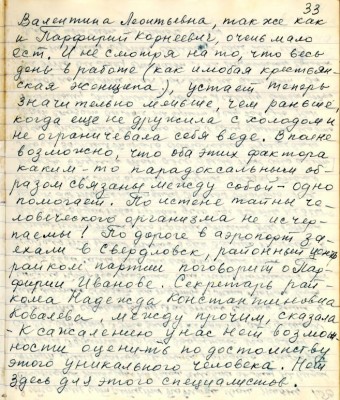 33
Валентина Леонтьевна, так же как
и Парфирий Корнеевич, очень мало
ест. И не смотря на то, что весь
день в работе (как и любая крестьян-
ская женщина), устает теперь
значительно меньше, чем раньше,
когда еще не дружила с холодом и
не ограничевала себя в еде. Вполне
возможно, что оба этих фактора
каким-то парадоксальным об-
разом связаны между собой - одно
помогает. По истене тайны че-
ловеческого организма не исчер-
паемы! По дороге в аэропорт за
ехали в Свердловск, районный центр
райком партии поговорить о Пар-
фирии Иванове. Секретарь рай
кома Надежда Константиновна
Ковалева между прочим, сказала
- К сажалению у нас нет возмож-
ности оценить по достоинству
этого уникального человека. Нет
здесь для этого специалистов.